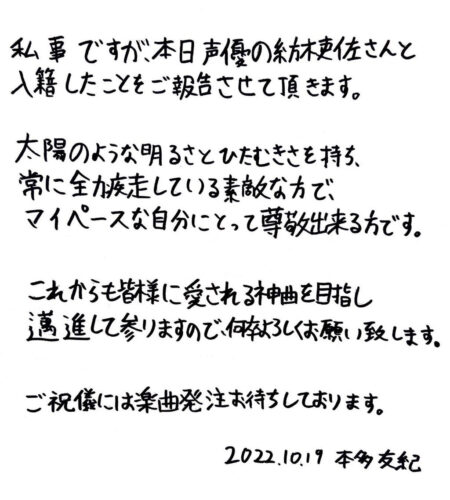 私事ですが、本日声優の紡木吏佐さんと
入籍したことをご報告させて頂きます。
太陽のような明るさとひたむきさを持ち、
常に全力疾走している素敵な方で、
マイペースな自分にとって尊敬出来る方です。
これからも皆様に愛される神曲を目指し
邁進して参りますので、何卒よろしくお願い致します。
ご祝儀には楽曲発注お待ちしております。
2022.10.19 本多友紀